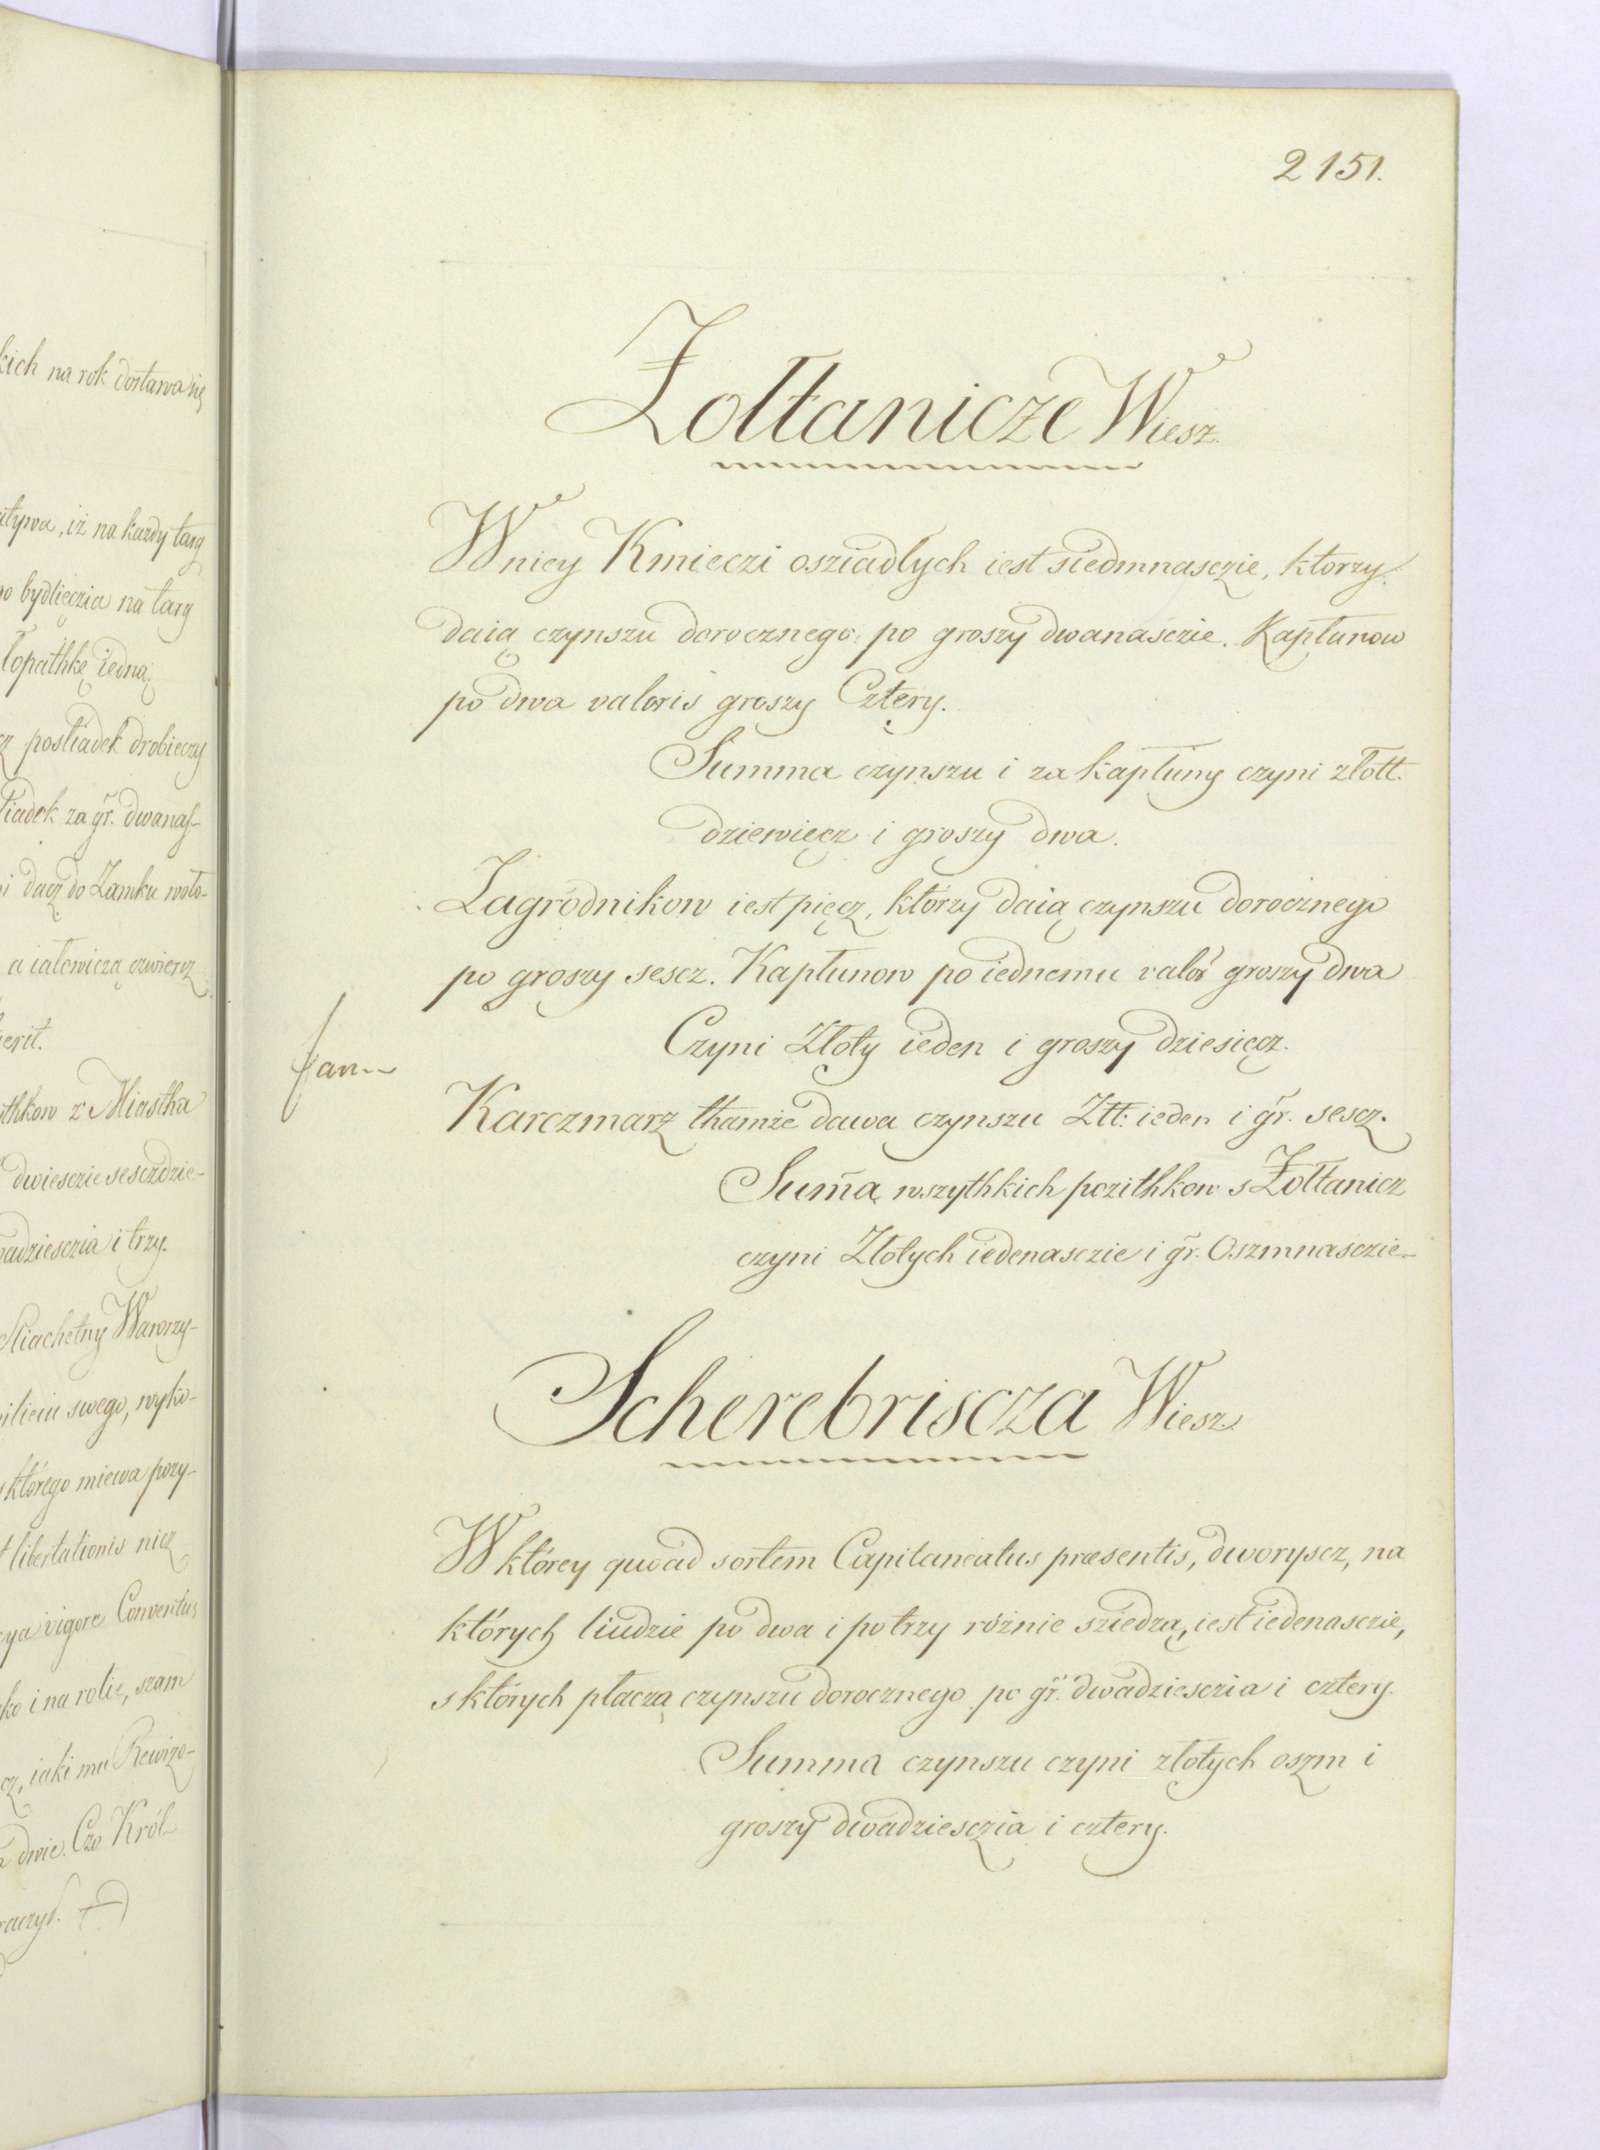 kich na rok dostawa się
iż na kazdy targ
bydlięczia na targ
łopathkę iedną
posliadek drobieczy
za gr. dwanas-
dacz do Zamku woło-
a iałowiczą czwiercz
z Miastka
dwiesczie sesczdzie-
i trzy.
Wawrzy-
swego, wyko-
którego miewa pozy-
libertationis nicz
vigore Conventus
i na rolie, szam
iaki mu Rewizo-
dwie. Czo Król
2151.
Zołtanicze Wiesz.
W nicy Kmieczi osziadłych iest siedmnasczie, którzy
daią czynszu dorocznego po groszy dwanasczie. Kapłunow
po dwa valoris groszy Cztery.
Summa czynszu i za kapłuny czyni złott.
dziewięcz i groszy dwa.
Zagrodnikow iest pięcz, którzy daią czynszu dorocznego
po groszy sescz. Kapłunow po iednemu valor groszy dwa
Czyni Złoty ieden i groszy dziesięcz.
Karczmarz thamże dawa czynszu Złł: ieden i gr. sescz.
Suma wszythkich pozithkow s Żołtanicz
czyni Złotych iedenasczie i gr. Oszmnasczie
Scherebriscza Wiesz.
W którey quoad sortem Capitaneatus praesentis, dworyscz, na
których liudzie po dwa i po trzy różnie sziedzą, iest iedenasczie,
s których płaczą czynszu dorocznego po gr. dwadziesczia i cztery.
Summa czynszu czyni złotych oszm i
groszy dwadziesczia i cztery.